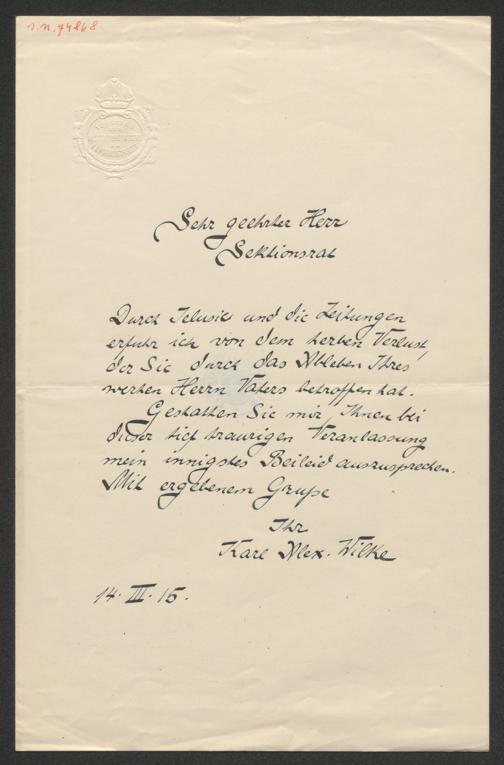 I.N. 74868
Sehr geehrter Herr
Sektionsrat
Durch Jelusic und die Zeitungen
erfuhr ich von dem herben Verlust,
der Sie durch das Ableben Ihres
werten Herrn Vaters betroffen hat.
Gestatten Sie mir, Ihnen bei
dieser tief traurigen Veranlassung
mein innigstes Beileid auszusprechen.
Mit ergebenem Gruße
Ihr
Karl Alex. Wilke
14. III. 15.